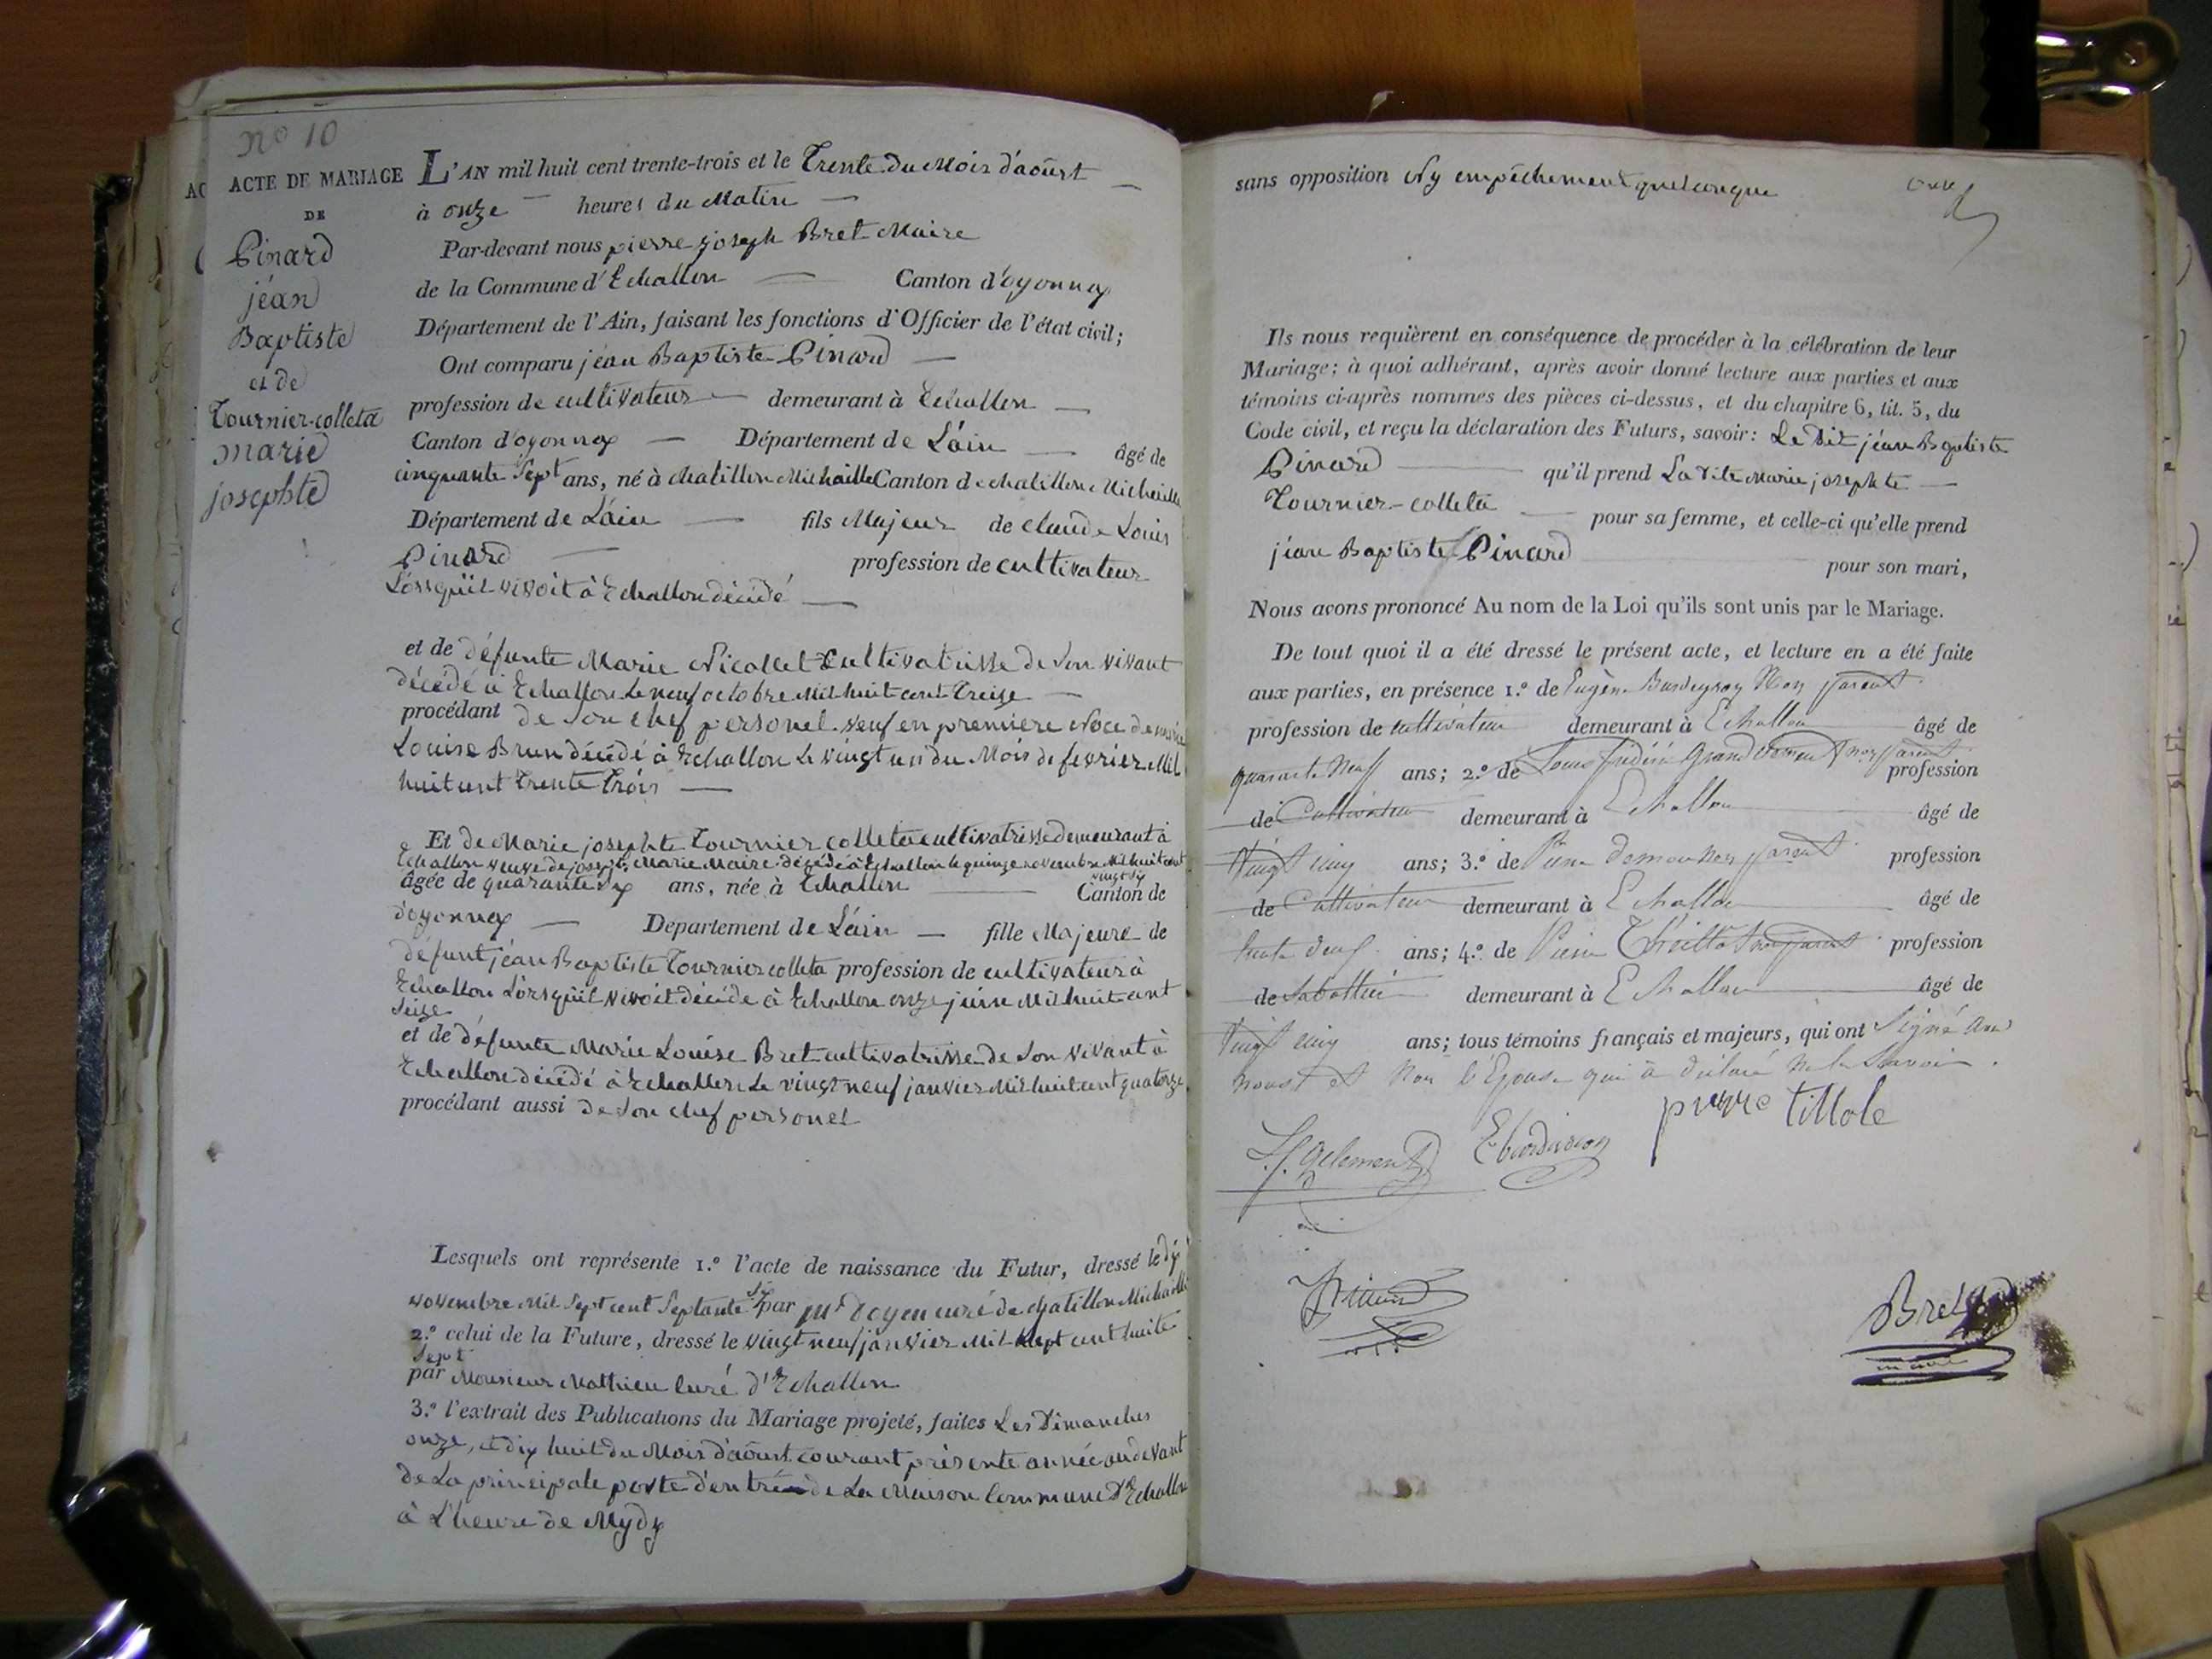 no 10
ACTE DE MARIAGE
DE
Pinard
jéan
Baptiste
et de
Tournier-colleta
marie
josephte
L'AN mil huit cent trente-trois et le Trente du Mois d'aoûrt
à onze heures du Matin
Par-devant nous pierre joseph Bret Maire
de la Commune d'Echallon Canton d'oyonnax
Département de l'Ain, faisant les fonctions d'Officier de l'état civil;
Ont comparu jéan Baptiste Pinard
profession de cultivateur demeurant à Echallon
Canton d'oyonnax Département de L'áin âgé de
cinquante Sept ans, né à chatillon Michaille Canton de chatillon Michaille
Département de L'áin fils Majeur de claude Louis
Pinard profession de cultivateur
Lórsqúil vivoit à Echallon décidé
et de défunte Marie Nicollet Cultivatrisse de Son vivant
décédé à Echallon Le neuf octobre Mil huit cent Treize
procédant de Son chef personel. veuf en premiere Noce de marie
Louise Brun décidé à Echallon Le vingt un du Mois de fevrier Mil
huit cent Trente Tróis
Et de Marie josephte Tournier colleta cultivatrisse demeurant à
Echallon veuve de joseph Marie Maire décédé à Echallon le quinze novembre Mil huit cent
vingt six
âgée de quarante six ans, née à Echallon Canton de
d'oyonnax Département de L'áin fille Majeure de
défunt jéan Baptiste Tournier colleta profession de cultivateur à
Echallon Lórsqúil vivoit décidé à Echallon onze juin Mil huit cent
Seize
et de défunte Marie Louise Bret cultivatrisse de Son vivant à
Echallon décidé à Echallon Le vingt neuf janvier Mil huit cent quatorze
procédant aussi de Son chef personel
Lesquels ont représenté 1.º l'acte de naissance du Futur, dressé le dix
novembre Mil Sept cent Septante Six par Mr doyen curé de chatillon Michaille
2.º celui de la Future, dressé le vingt neuf janvier Mil Sept cent huite
Sept
par Monsieur Mathieu Curé d'Echallon
3.º l'extrait des Publications du Mariage projeté, faites Les Dimanches
onze, et dix huit du Mois d'aoûrt courant présente année au devant
de La principale porte d'entrée de La Maison Commune d'Echallon
à L'heure de Mydy
sans opposition Ny empêchement quelconque
Ils nous requièrent en conséquence de procéder à la célébration de leur
Mariage; à quoi adhérant, après avoir donné lecture aux parties et aux
témoins ci-après nommés des pièces ci-dessus, et du chapitre 6, tit. 5, du
Code civil, et reçu la déclaration des Futurs, savoir: Le dit jéan Baptiste
Pinard qu'il prend La dite Marie josephte
Tournier-colleta pour sa femme, et celle-ci qu'elle prend
jéan Baptiste Pinard pour son mari,
Nous avons prononcé Au nom de la Loi qu'ils sont unis par le Mariage.
De tout quoi il a été dressé le présent acte, et lecture en a été faite
aux parties, en présence 1.º de Eugène Burdeyroy Non parent
profession de cultivateur demeurant à Echallon âgé de
quarante Neuf ans; 2.º de Louis frédéric Grandclement non parent profession
de Cultivateur demeurant à Echallon âgé de
vingt cinq ans; 3.º de Pierre non parent profession
de Cultivateur demeurant à Echallon âgé de
ans; 4.º de Pierre non parent profession
de Sabottier demeurant à Echallon âgé de
Vingt cinq ans; tous témoins français et majeurs, qui ont Signé avec
nous et Non l'Epouse qui à déclaré Ne le Savoir.
pierre tillole
Bret
maire